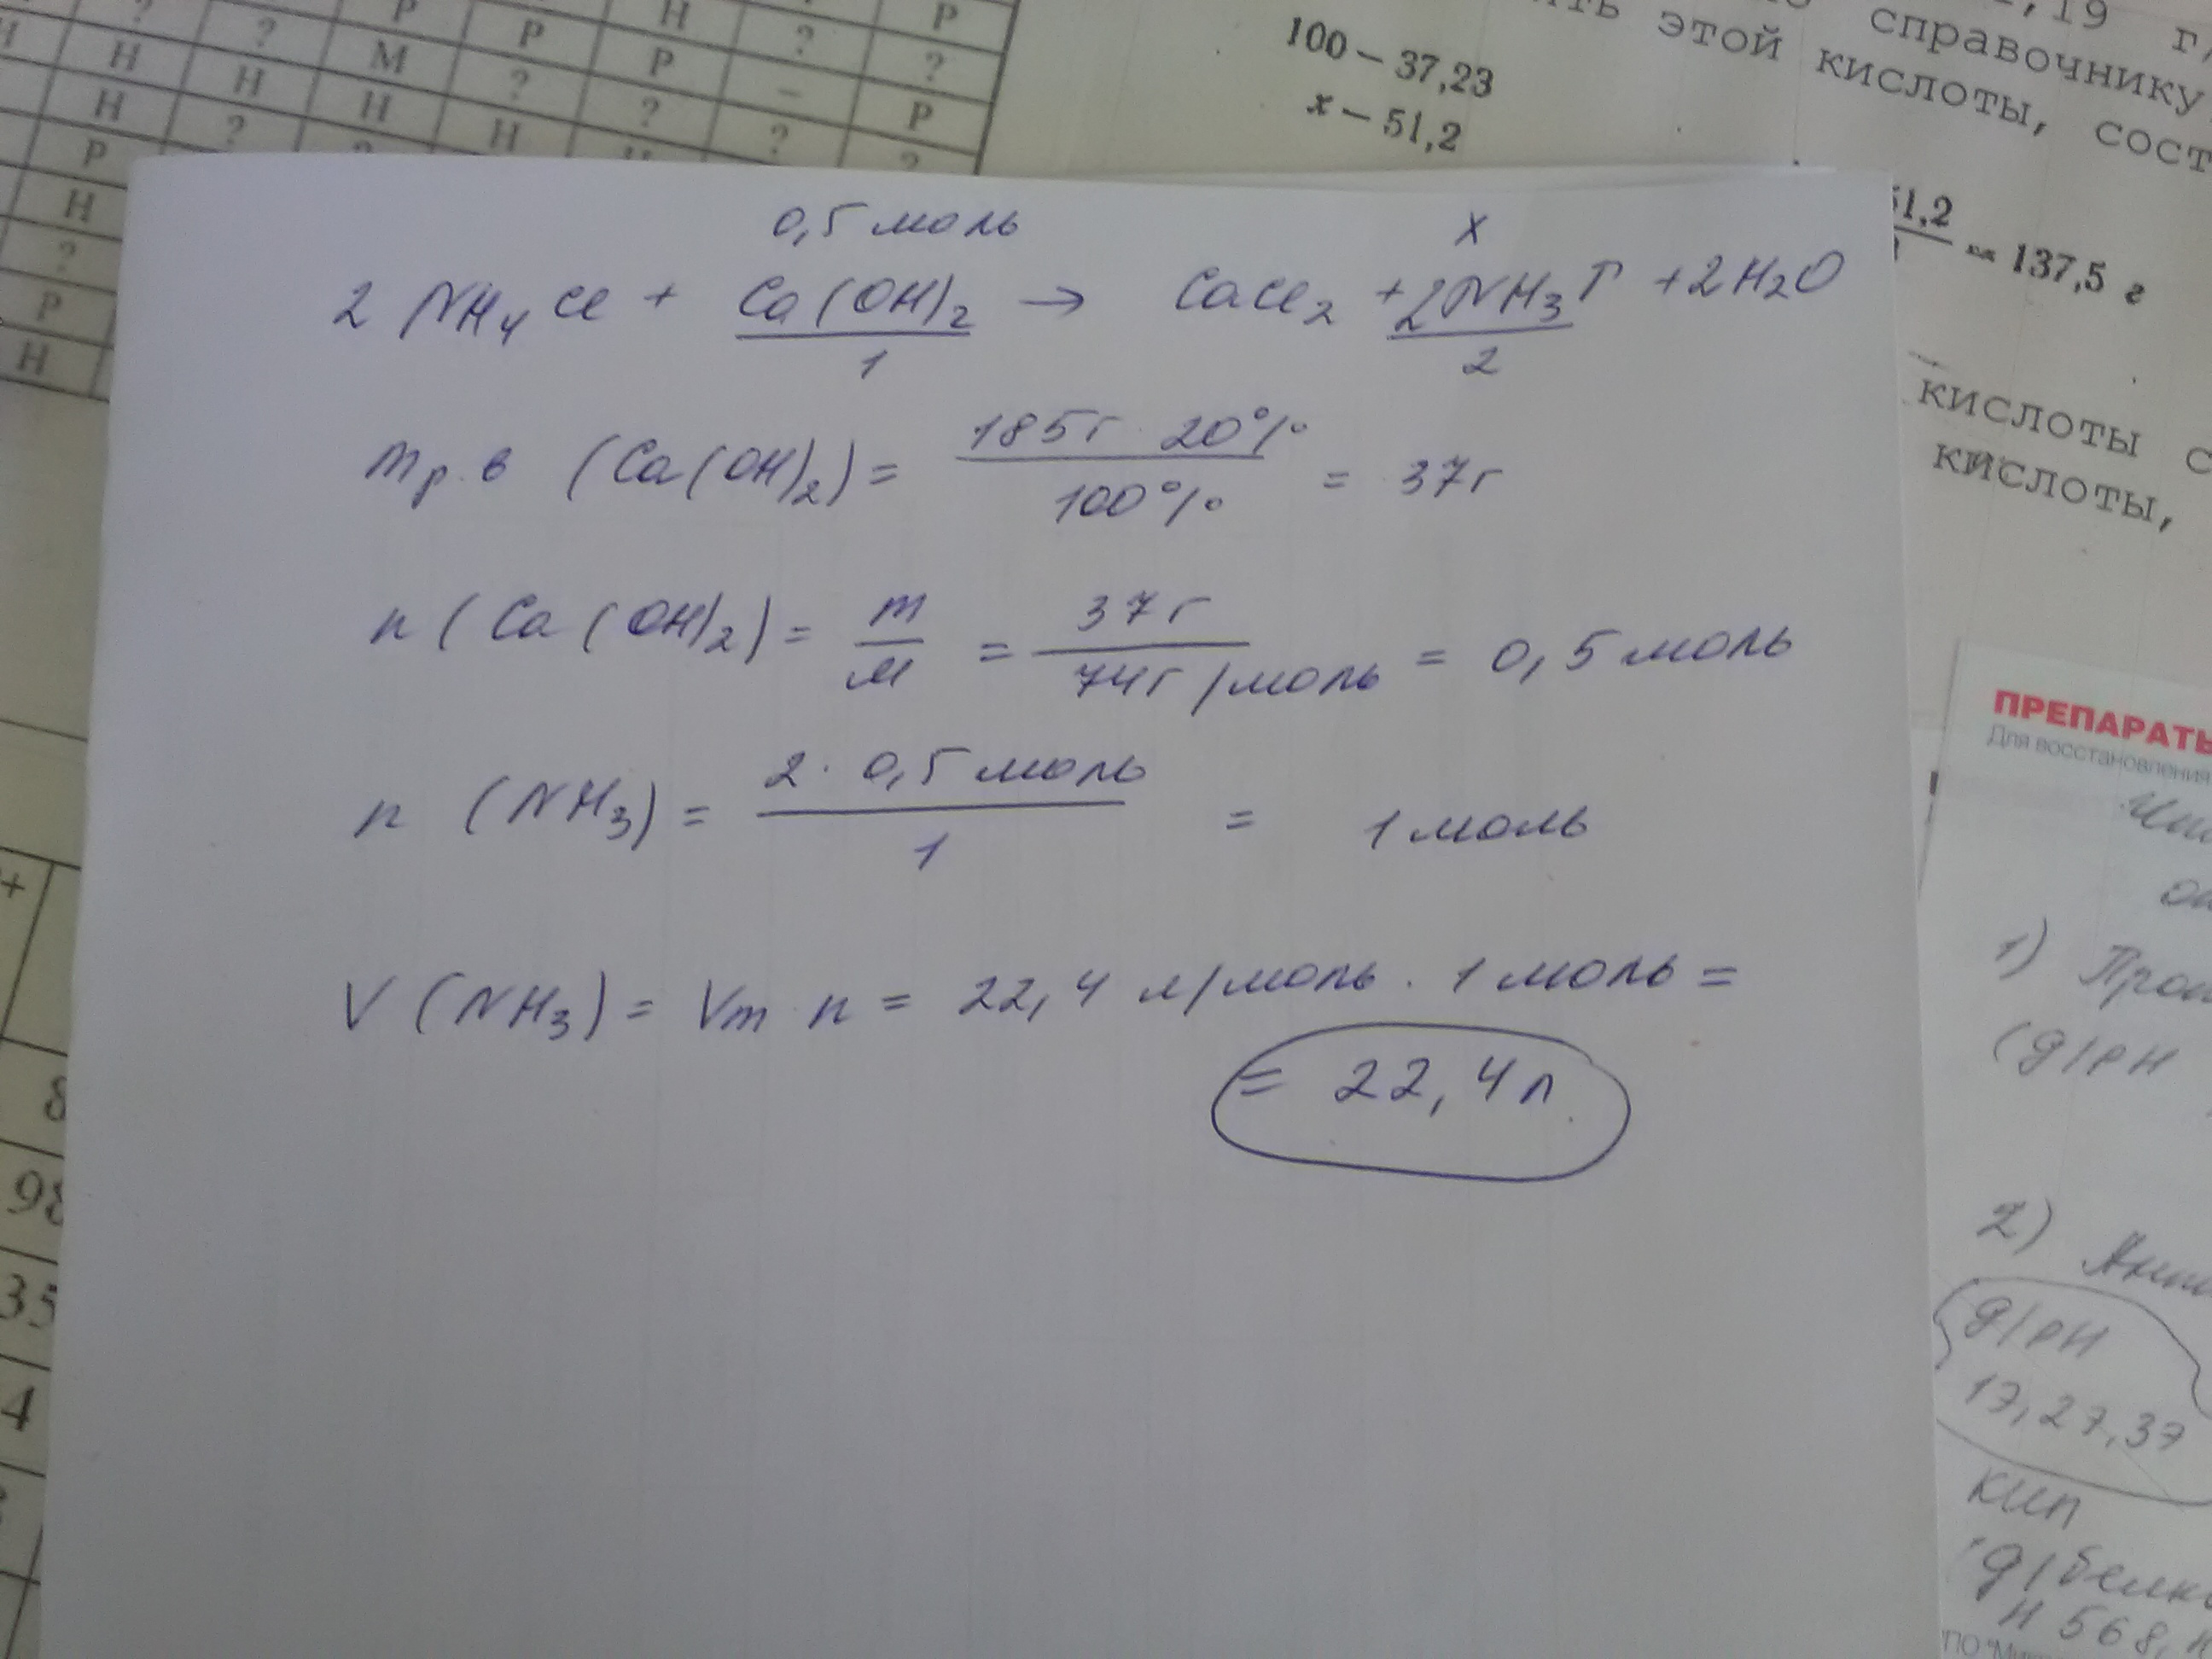 ? Р Н ? Р
Н ? Р Р ?
Н М Р ?
Н Н ? –
Н ? Н Н ? Р
Р ? ?
Н
?
Р
Н
100 – 37,23
х – 51,2
,19 г,
справочнику
этой кислоты, сост
51,2
= 137,5 г
кислоты с
кислоты,
0,5 моль х
2 NH4Cl + Ca(OH)2 → CaCl2 + 2NH3↑ + 2H2O
1 2
mр.в (Ca(OH)2) = 185г · 20% / 100% = 37г
n (Ca(OH)2) = m/M = 37г / 74г/моль = 0,5 моль
n (NH3) = 2 · 0,5 моль / 1 = 1 моль
V (NH3) = Vm n = 22,4 л/моль · 1 моль =
= 22,4 л.
+
8
98
35
4
ПРЕПАРАТЫ
Для восстановления
1)
(д/рН
2)
д/рН
17,27,37
кип
д/белк
Н 568,